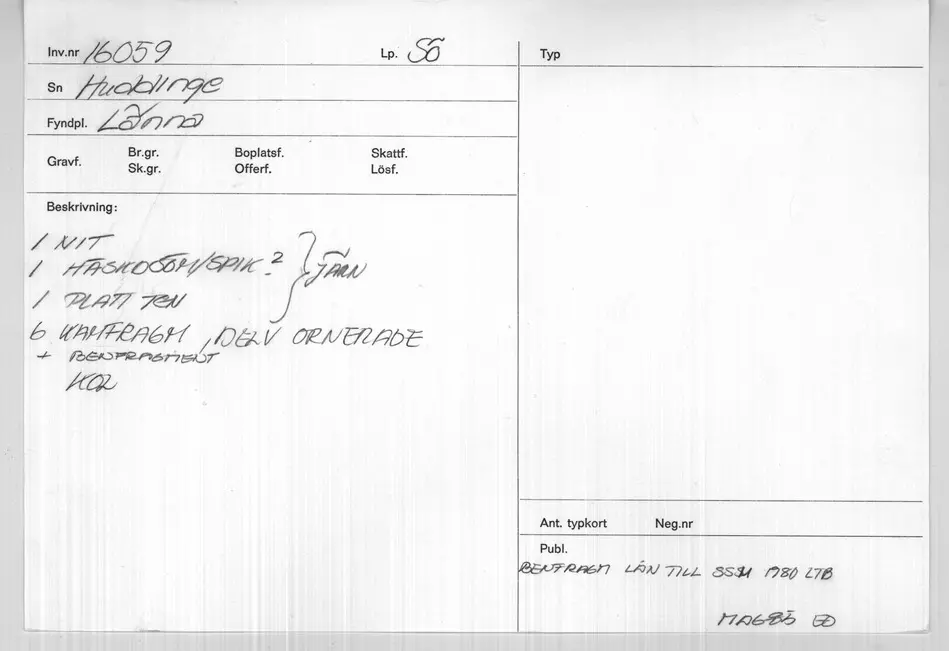 Inv.nr 16059 Lp. Sö
Sn Huddinge
Fyndpl. Länna
Gravf. Br.gr. Boplatsf. Skattf.
Sk.gr. Offerf. Lösf.
Beskrivning:
1 NIT
1 HÄSKOSÖM/SPIK? } JÄRN
1 PLATT TEN
6 KAMFRAGM, DELV ORNERADE
+ BENFRAGMENT
KOL
Typ
Ant. typkort Neg.nr
Publ.
BENFRAGM LÅN TILL SSM 1980 LTB